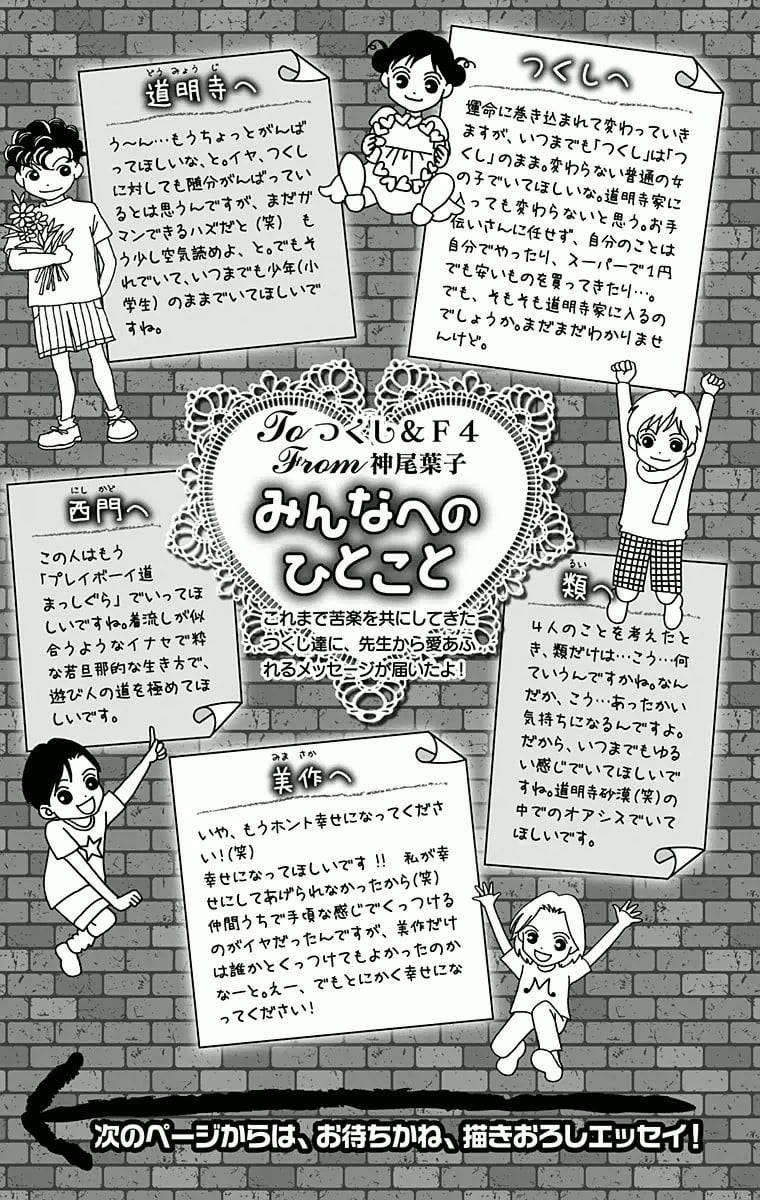 つくしへ
運命に巻き込まれて変わっていき
ますが、いつまでも「つくし」は「つ
くし」のまま。変わらない普通の女
の子でいてほしいな。道明寺家に
入っても変わらないと思う。お手
伝いさんに任せず、自分のことは
自分でやったり、スーパーで1円
でも安いものを買ってきたり…。
でも、そもそも道明寺家に入るの
でしょうか。まだまだわかりませ
んけど。
どうみょうじ
道明寺へ
う〜ん…もうちょっとがんば
ってほしいな、と。イヤ、つくし
に対しても随分がんばってい
るとは思うんですが、まだガ
マンできるハズだと(笑) も
う少し空気読めよ、と。でもそ
れでいて、いつまでも少年(小
学生)のままでいてほしいで
すね。
Toつくし&F4
From神尾葉子
みんなへの
ひとこと
これまで苦楽を共にしてきた
つくし達に、先生から愛あふ
れるメッセージが届いたよ!
るい
類へ
4人のことを考えたと
き、類だけは…こう…何
ていうんですかね。なん
だか、こう…あったかい
気持ちになるんですよ。
だから、いつまでもゆる
い感じでいてほしいで
すね。道明寺砂漠(笑)の
中でのオアシスでいて
ほしいです。
にしかど
西門へ
この人はもう
「プレイボーイ道
まっしぐら」でいってほ
しいですね。着流しが似
合うようなイナセで粋
な若旦那的な生き方で、
遊び人の道を極めてほ
しいです。
みまさか
美作へ
いや、もうホント幸せになってくださ
い!(笑)
幸せになってほしいです!! 私が幸
せにしてあげられなかったから(笑)
仲間うちで手頃な感じでくっつける
のがイヤだったんですが、美作だけ
は誰かとくっつけてもよかったのか
なーと。えー、でもとにかく幸せにな
ってください!
M
次のページからは、お待ちかね、描きおろしエッセイ!